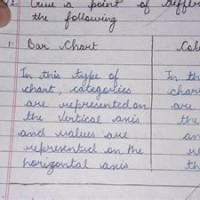 Give a point of
the following
1. Bar Chart
In this type of
chart, categories
are represented on
the vertical axis
and values are
represented on the
horizontal axis
In th
char
are
the
an